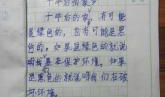 十年后的家乡
十年后的家,有可能
是绿色的,也有可能是黑
色的。如果是绿色的就说
明我们是保护环境,如果
是黑色的就说明我们在破
坏环境。